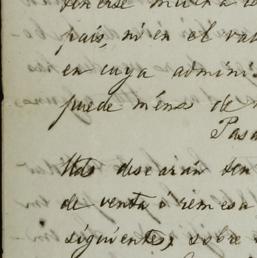 tenerse mucha
país, ni en el va
en cuya admini
puede ménos de
Pasa
Uds desearán ten
de venta ó remesa
siguientes, sobre